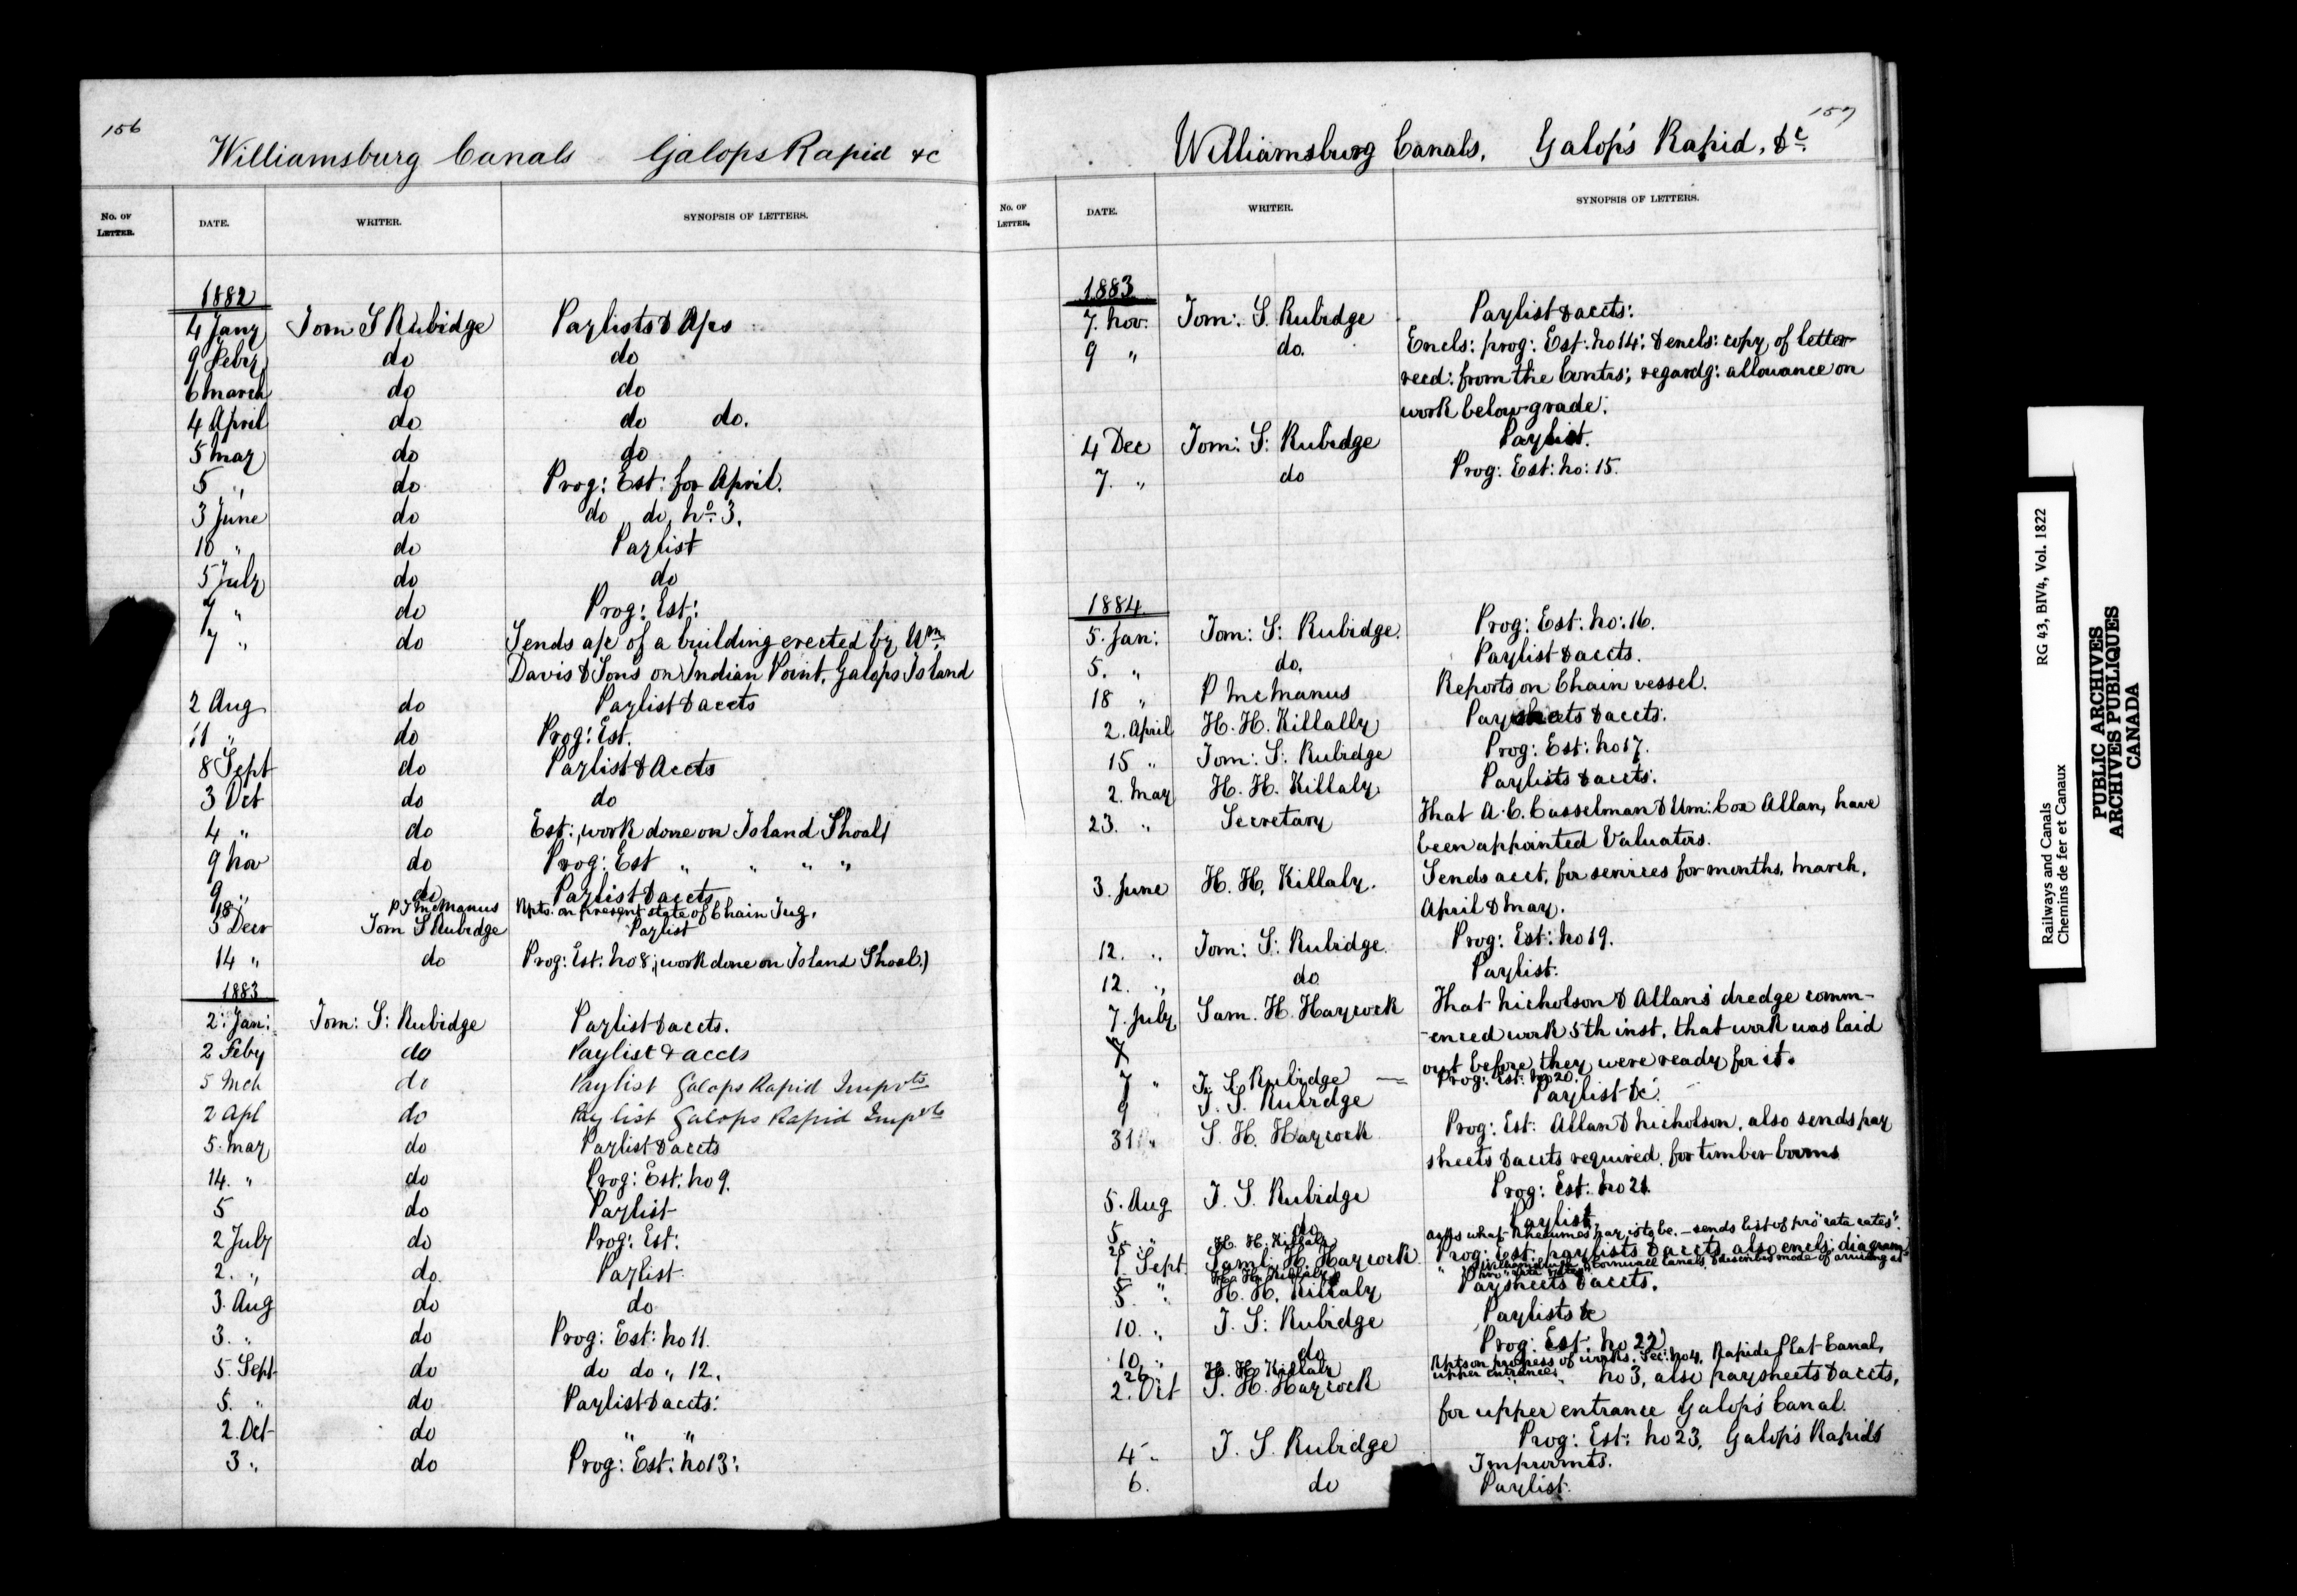 156
Williamsburg Canals Galops Rapid &c
No. OF LETTER. DATE. WRITER. SYNOPSIS OF LETTERS.
1882
4 Jany Tom S Rubidge Paylists & A/cs
9 Feby do do
6 March do do
4 April do do do.
5 May do do
5 " do Prog: Est: for April.
3 June do do do, No. 3.
10 " do Paylist
5 July do do
7 " do Prog: Est:
7 " do Sends a/c of a building erected by Wm.
Davis & Sons on Indian Point, Galops Island
2 Aug do Paylist & accts
11 " do Prog: Est.
8 Sept do Paylist & Accts
3 Oct do do
4 " do Est:, work done on Island Shoal)
9 Nov do Prog: Est " " " "
9 " do Paylist & accts
18 " P J McManus Rpts. on present state of Chain Tug.
5 Decr Tom S Rubidge Paylist
14 " do Prog: Est: No 8; (work done on Island Shoal.)
1883
2: Jan: Tom: S: Rubidge Paylist & accts.
2 Feby do Paylist & accts
5 Mch do Paylist Galops Rapid Impvts
2 Apl do Pay list Galops Rapid Impvts
5. May do Paylist & accts
14. " do Prog: Est: No 9.
5 do Paylist
2 July do Prog: Est:
2. " do. Paylist
3. Aug do do
3. " do Prog: Est: No 11.
5. Sept do do do " 12.
5. " do Paylist & accts:
2. Oct do " "
3 " do Prog: Est: No 13:
157
Williamsburg Canals, Galop's Rapid, &c.
No. OF LETTER. DATE. WRITER. SYNOPSIS OF LETTERS.
1883
7. Nov: Tom: S. Rubidge Paylist & accts:
9 " do. Encls: prog: Est: No 14: & encls: copy of letter
recd: from the Contrs; regardg: allowance on
work below grade.
4 Dec Tom: S: Rubidge Paylist.
7. " do Prog: Est: No: 15.
1884
5. Jan: Tom: S: Rubidge. Prog: Est: No: 16.
5. " do. Paylist & accts.
18 " P McManus Reports on Chain vessel.
2. April H. H. Killally Paysheets & accts.
15 " Tom: S: Rubidge Prog: Est: No 17.
2. May H. H. Killaly Paylists & accts.
23. " Secretary That A. C. Casselman & Wm: Cox Allan, have
been appointed Valuators.
3. June H. H. Killaly. Sends acct, for services for months, March,
April & May.
12. " Tom: S: Rubidge. Prog: Est: No 19.
12. " do Paylist.
7. July Sam. H. Haycock That Nicholson & Allan's dredge comm-
-enced work 5th inst, that work was laid
out before they were ready for it.
7 " T. S. Rubidge Prog: Est: No 20.
9 T. S. Rubidge Paylist &c.
31 " S. H. Haycock Prog: Est: Allan & Nicholson, also sends pay
sheets & accts required, for timber booms
5. Aug T. S. Rubidge Prog: Est: No 21.
5. " do Paylist
25 H. H. Killaly asks what Rheaume's pay is to be. - sends list of pro "rata rates".
1 Sept Saml: H. Haycock Prog: Est: paylists & accts, also encls: diagram
" H. H. Killaly " Williamsburg & Cornwall Canals, & describes mode of arriving at
pro "rata rates"
5. " H. H. Killaly Paysheets & accts.
10. " T. S: Rubidge Paylists &c
10. " do Prog: Est: No 22
26. H. H. Killaly Rpts on progress of works. Sec: No 4, Rapide Plat Canal,
2. Oct S. H. Haycock upper entrances, No 3, also paysheets & accts,
for upper entrance Galop's Canal.
4 " T. S. Rubidge Prog: Est: No 23, Galop's Rapids
Improvmts.
6. do Paylist.
Railways and Canals RG 43, BIV4, Vol. 1822
Chemins de fer et Canaux
PUBLIC ARCHIVES
ARCHIVES PUBLIQUES
CANADA